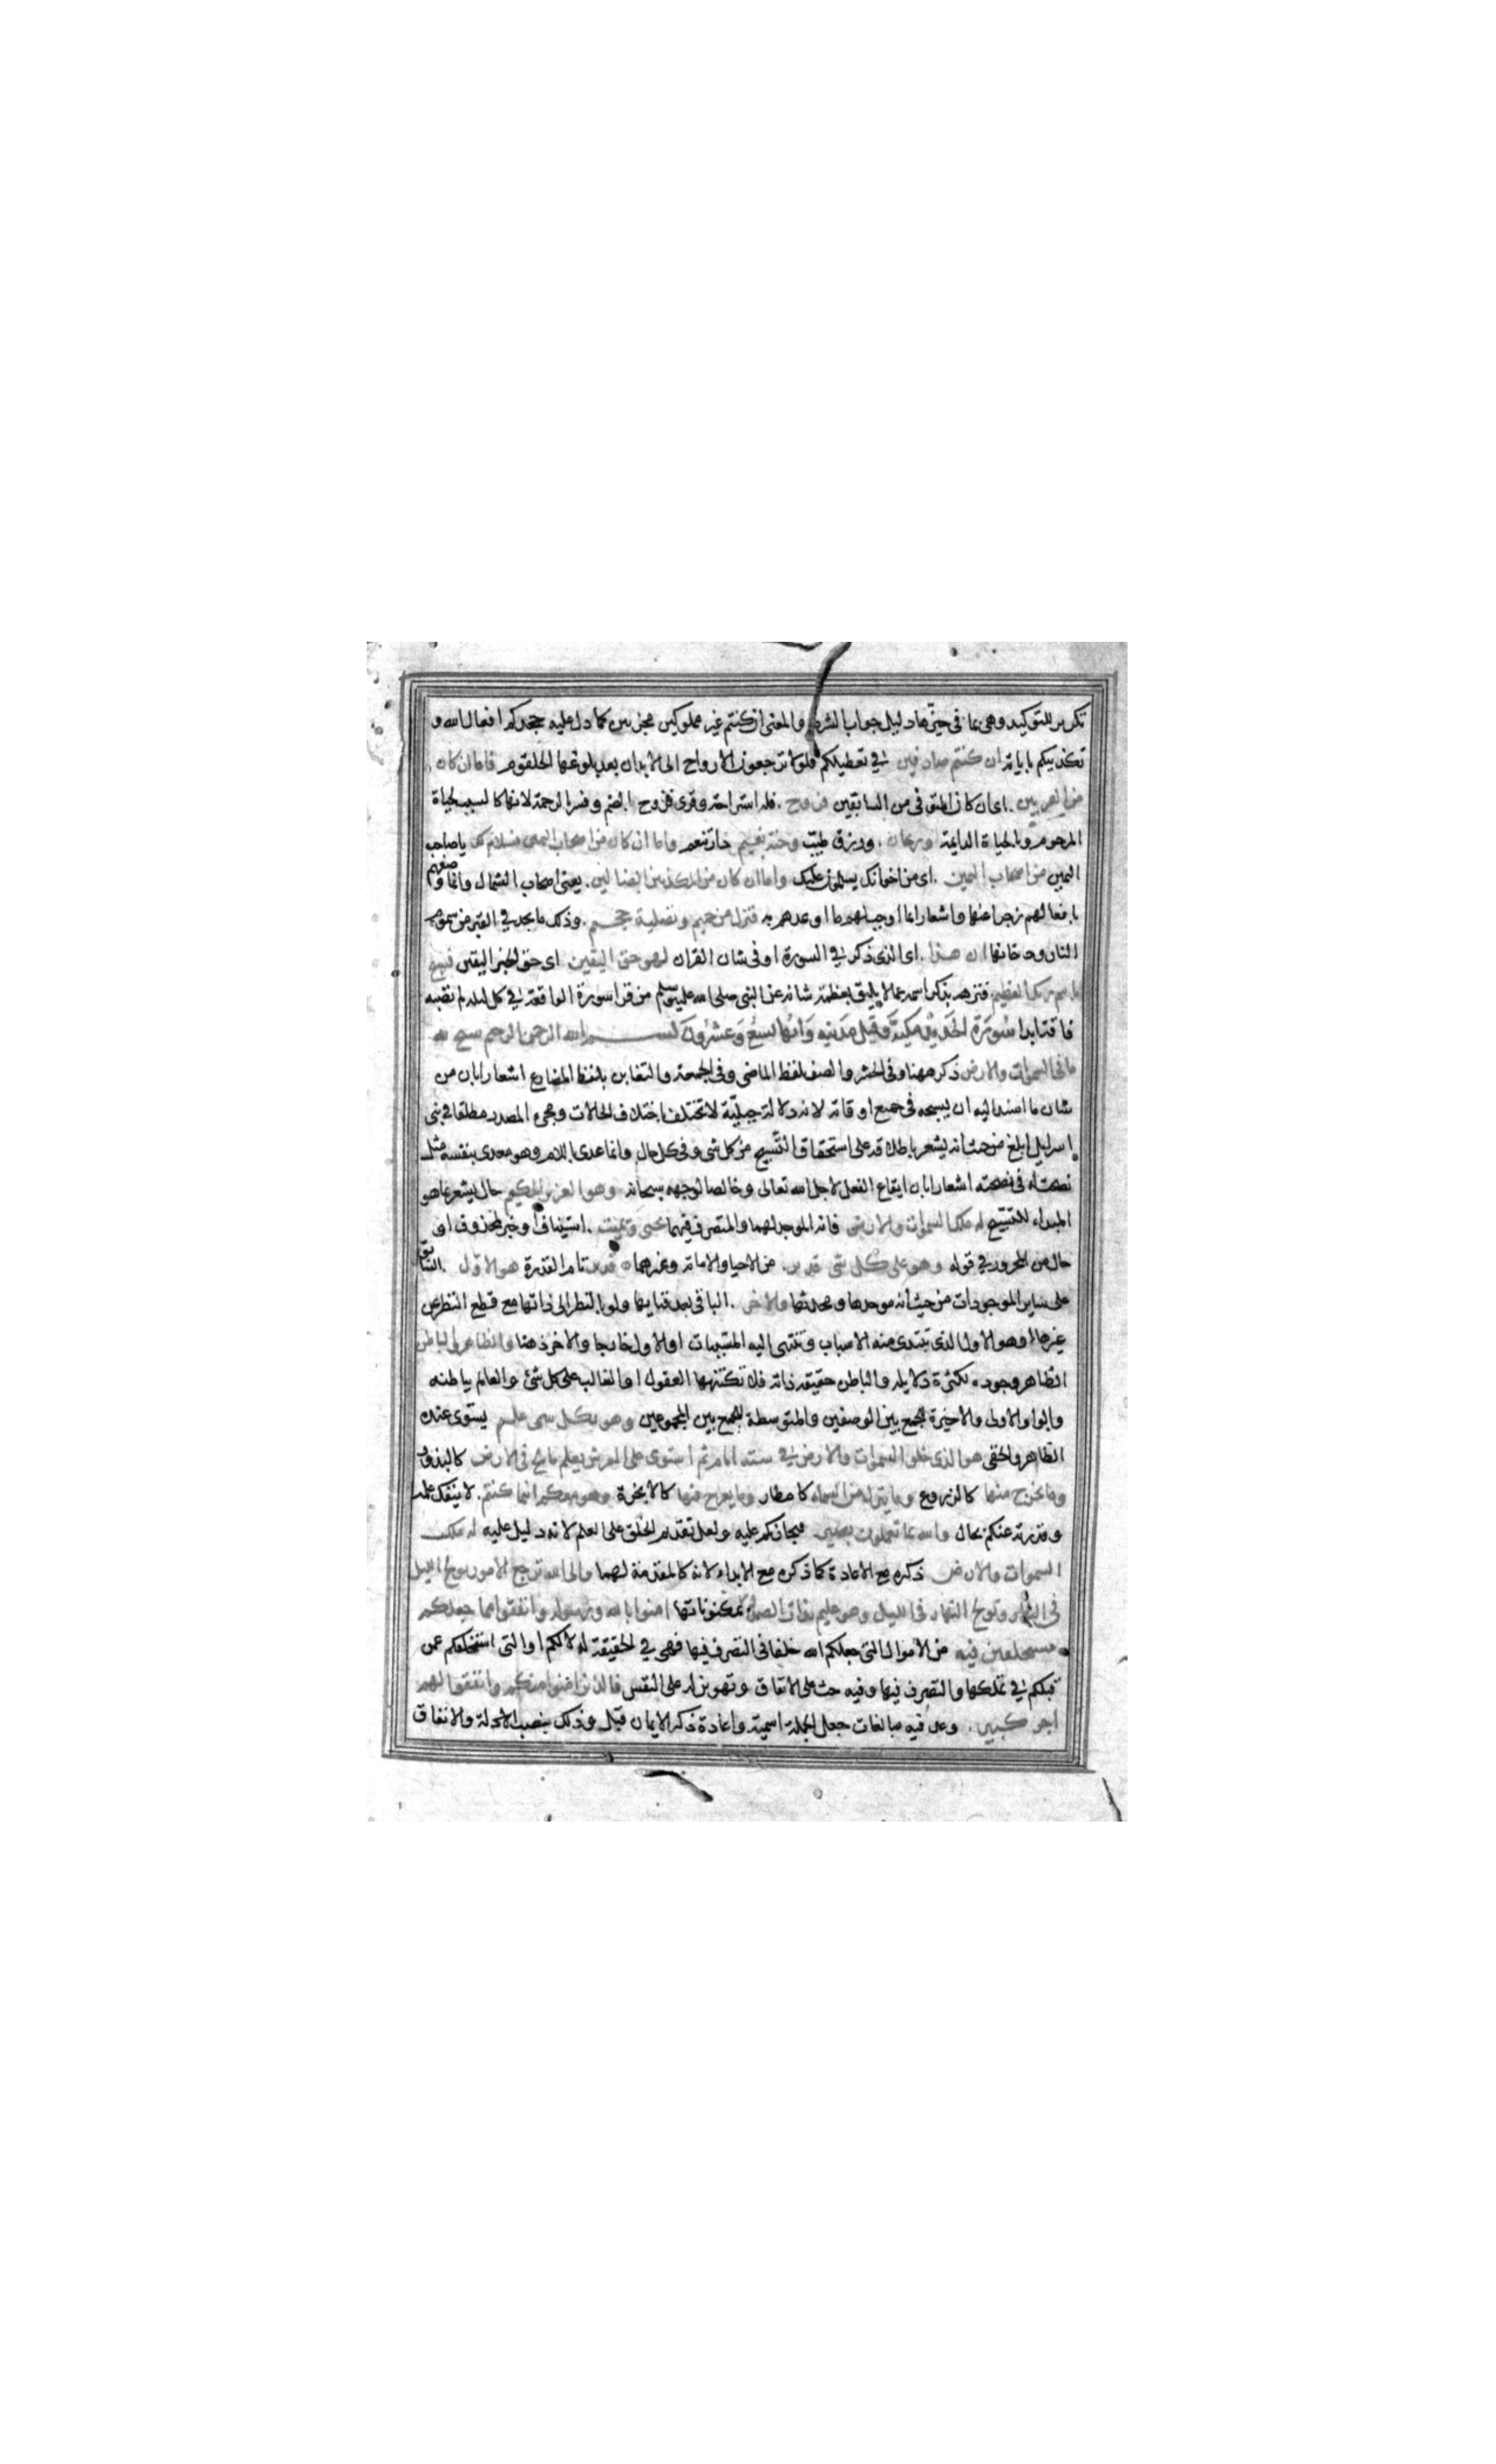 تكرير للتوكيد وهى بما فى حيزها دليل جواب الشرط والمعنى ان كنتم غير مملوكين مجزيين كما دل عليه جحدكم افعال الله و
تكذيبكم باياته ان كنتم صادقين في تعطيلكم فلولا ترجعون الارواح الى الابدان بعد بلوغها الحلقوم فاما ان كان
من المقربين اى ان كان المتوفى من السابقين فروح فله استراحة وقرى فروح بالضم وفسر بالرحمة لانها كالسبب لحياة
المرحوم وبالحياة الدايمة وريحان ورزق طيب وجنة نعيم ذات تنعم واما ان كان من اصحاب اليمين فسلام لك يا صاحب
اليمين من اصحاب اليمين اى من اخوانك يسلمون عليك واما ان كان من المكذبين الضالين يعنى اصحاب الشمال وانما وصفهم
بافعالهم زجرا عنها واشعارا بما اوجب لهم ما اوعدهم به فنزل من حميم وتصلية جحيم وذلك ما يجد في القبر من سموم
النار ودخانها ان هذا اى الذى ذكر في السورة او فى شان القران لهو حق اليقين اى حق الخبر اليقين فسبح
باسم ربك العظيم فنزهه بذكر اسمه عما لا يليق بعظمة شانه عن النبى صلى الله عليه وسلم من قرا سورة الواقعة في كل ليلة لم تصبه
فاقة ابدا سورة الحديد مكية وقيل مدنية وايها تسع وعشرون بسم الله الرحمن الرحيم سبح لله
ما فى السموات والارض ذكر ههنا وفى الحشر والصف بلفظ الماضى وفى الجمعة والتغابن بلفظ المضارع اشعارا بان من
شان ما اسند اليه ان يسبحه فى جميع اوقاته لانه دلالة جبلية لا تختلف باختلاف الحالات ومجىء المصدر مطلقا في بنى
اسرايل ابلغ من حيث انه يشعر باطلاقه على استحقاق التسبيح من كل شى وفى كل حال وانما عدى باللام وهو معدى بنفسه مثل
نصحت له فى نصحته اشعارا بان ايقاع الفعل لاجل الله تعالى وخالصا لوجهه سبحانه وهو العزيز الحكيم حال يشعر بما هو
المبداء للتسبيح له ملك السموات والارض فانه الموجد لهما والمتصرف فيهما يحيى ويميت استيناف او خبر لمحذوف او
حال من المجرور في قوله وهو على كل شى قدير من الاحيا والاماتة وغيرهما قدير تام القدرة هو الاول السابق
على ساير الموجودات من حيث انه موجدها ومحدثها والاخر الباقى بعد فنايها ولو بالنظر الى ذاتها مع قطع النظر عن
غيرها او هو الاول الذى تبتدى منه الاسباب وتنتهى اليه المسببات او الاول خارجا والاخر ذهنا والظاهر والباطن
الظاهر وجوده لكثرة دلايله والباطن حقيقة ذاته فلا تكتنهها العقول او الغالب على كل شئ والعالم بباطنه
والواو الاولى والاخيرة للجمع بين الوصفين والمتوسطة للجمع بين المجموعين وهو بكل شى عليم يستوى عنده
الظاهر والخفى هو الذى خلق السموات والارض في ستة ايام ثم استوى على العرش يعلم ما يلج فى الارض كالبذور
وما يخرج منها كالزروع وما ينزل من السماء كامطار وما يعرج فيها كالابخرة وهو معكم اينما كنتم لا ينفك علمه
وقدرته عنكم بحال والله بما تعملون بصير فيجازيكم عليه ولعل تقديم الخلق على العلم لانه دليل عليه له ملك
السموات والارض ذكره مع الاعادة كما ذكره مع الابداء لانه كالمقدمة لهما والى الله ترجع الامور يولج الليل
فى النهار ويولج النهار فى الليل وهو عليم بذات الصدور بمكنوناتها امنوا بالله ورسوله وانفقوا مما جعلكم
مستخلفين فيه من الاموال التى جعلكم الله خلفا فى التصرف فيها فهى في الحقيقة له لا لكم او التى استخلفكم عمن
قبلكم في تملكها والتصرف فيها وفيه حث على الانفاق وتهوين له على النفس فالذين امنوا منكم وانفقوا لهم
اجر كبير وعد فيه مبالغات جعل الجملة اسمية واعادة ذكر الايمان قبل وذلك بنصب الادلة والانفاق